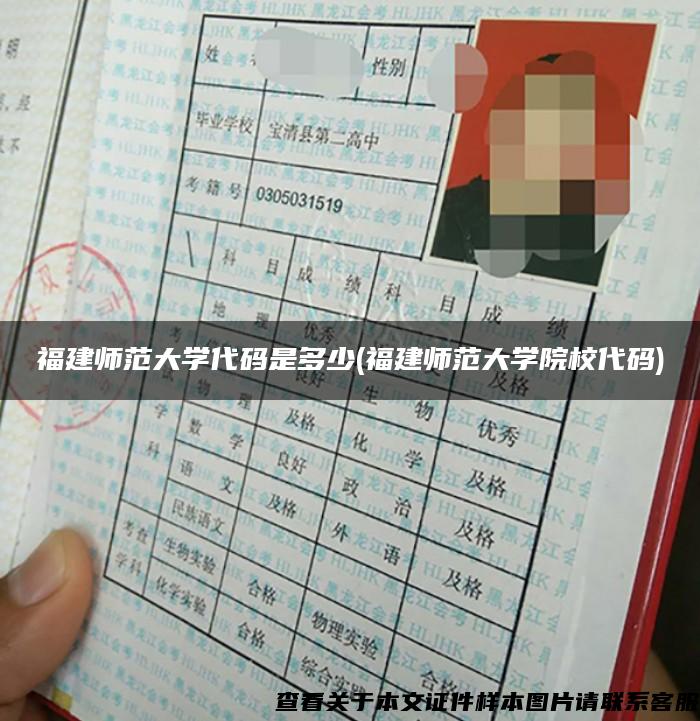 姓
性别
毕业学校 宝清县第二高中
考籍号 0305031519
科目 成绩 科目 成绩
地理 优秀
福建师范大学代码是多少(福建师范大学院校代码)
良好 及格
物理 及格 生物 优秀
学 数学 良好 化学 及格
科 语文 及格 政治 及格
民族语文 外语 及格
考查 生物实验 合格 物理实验 合格
学科 化学实验 合格 综合实
查看关于本文证件样本图片请联系客服